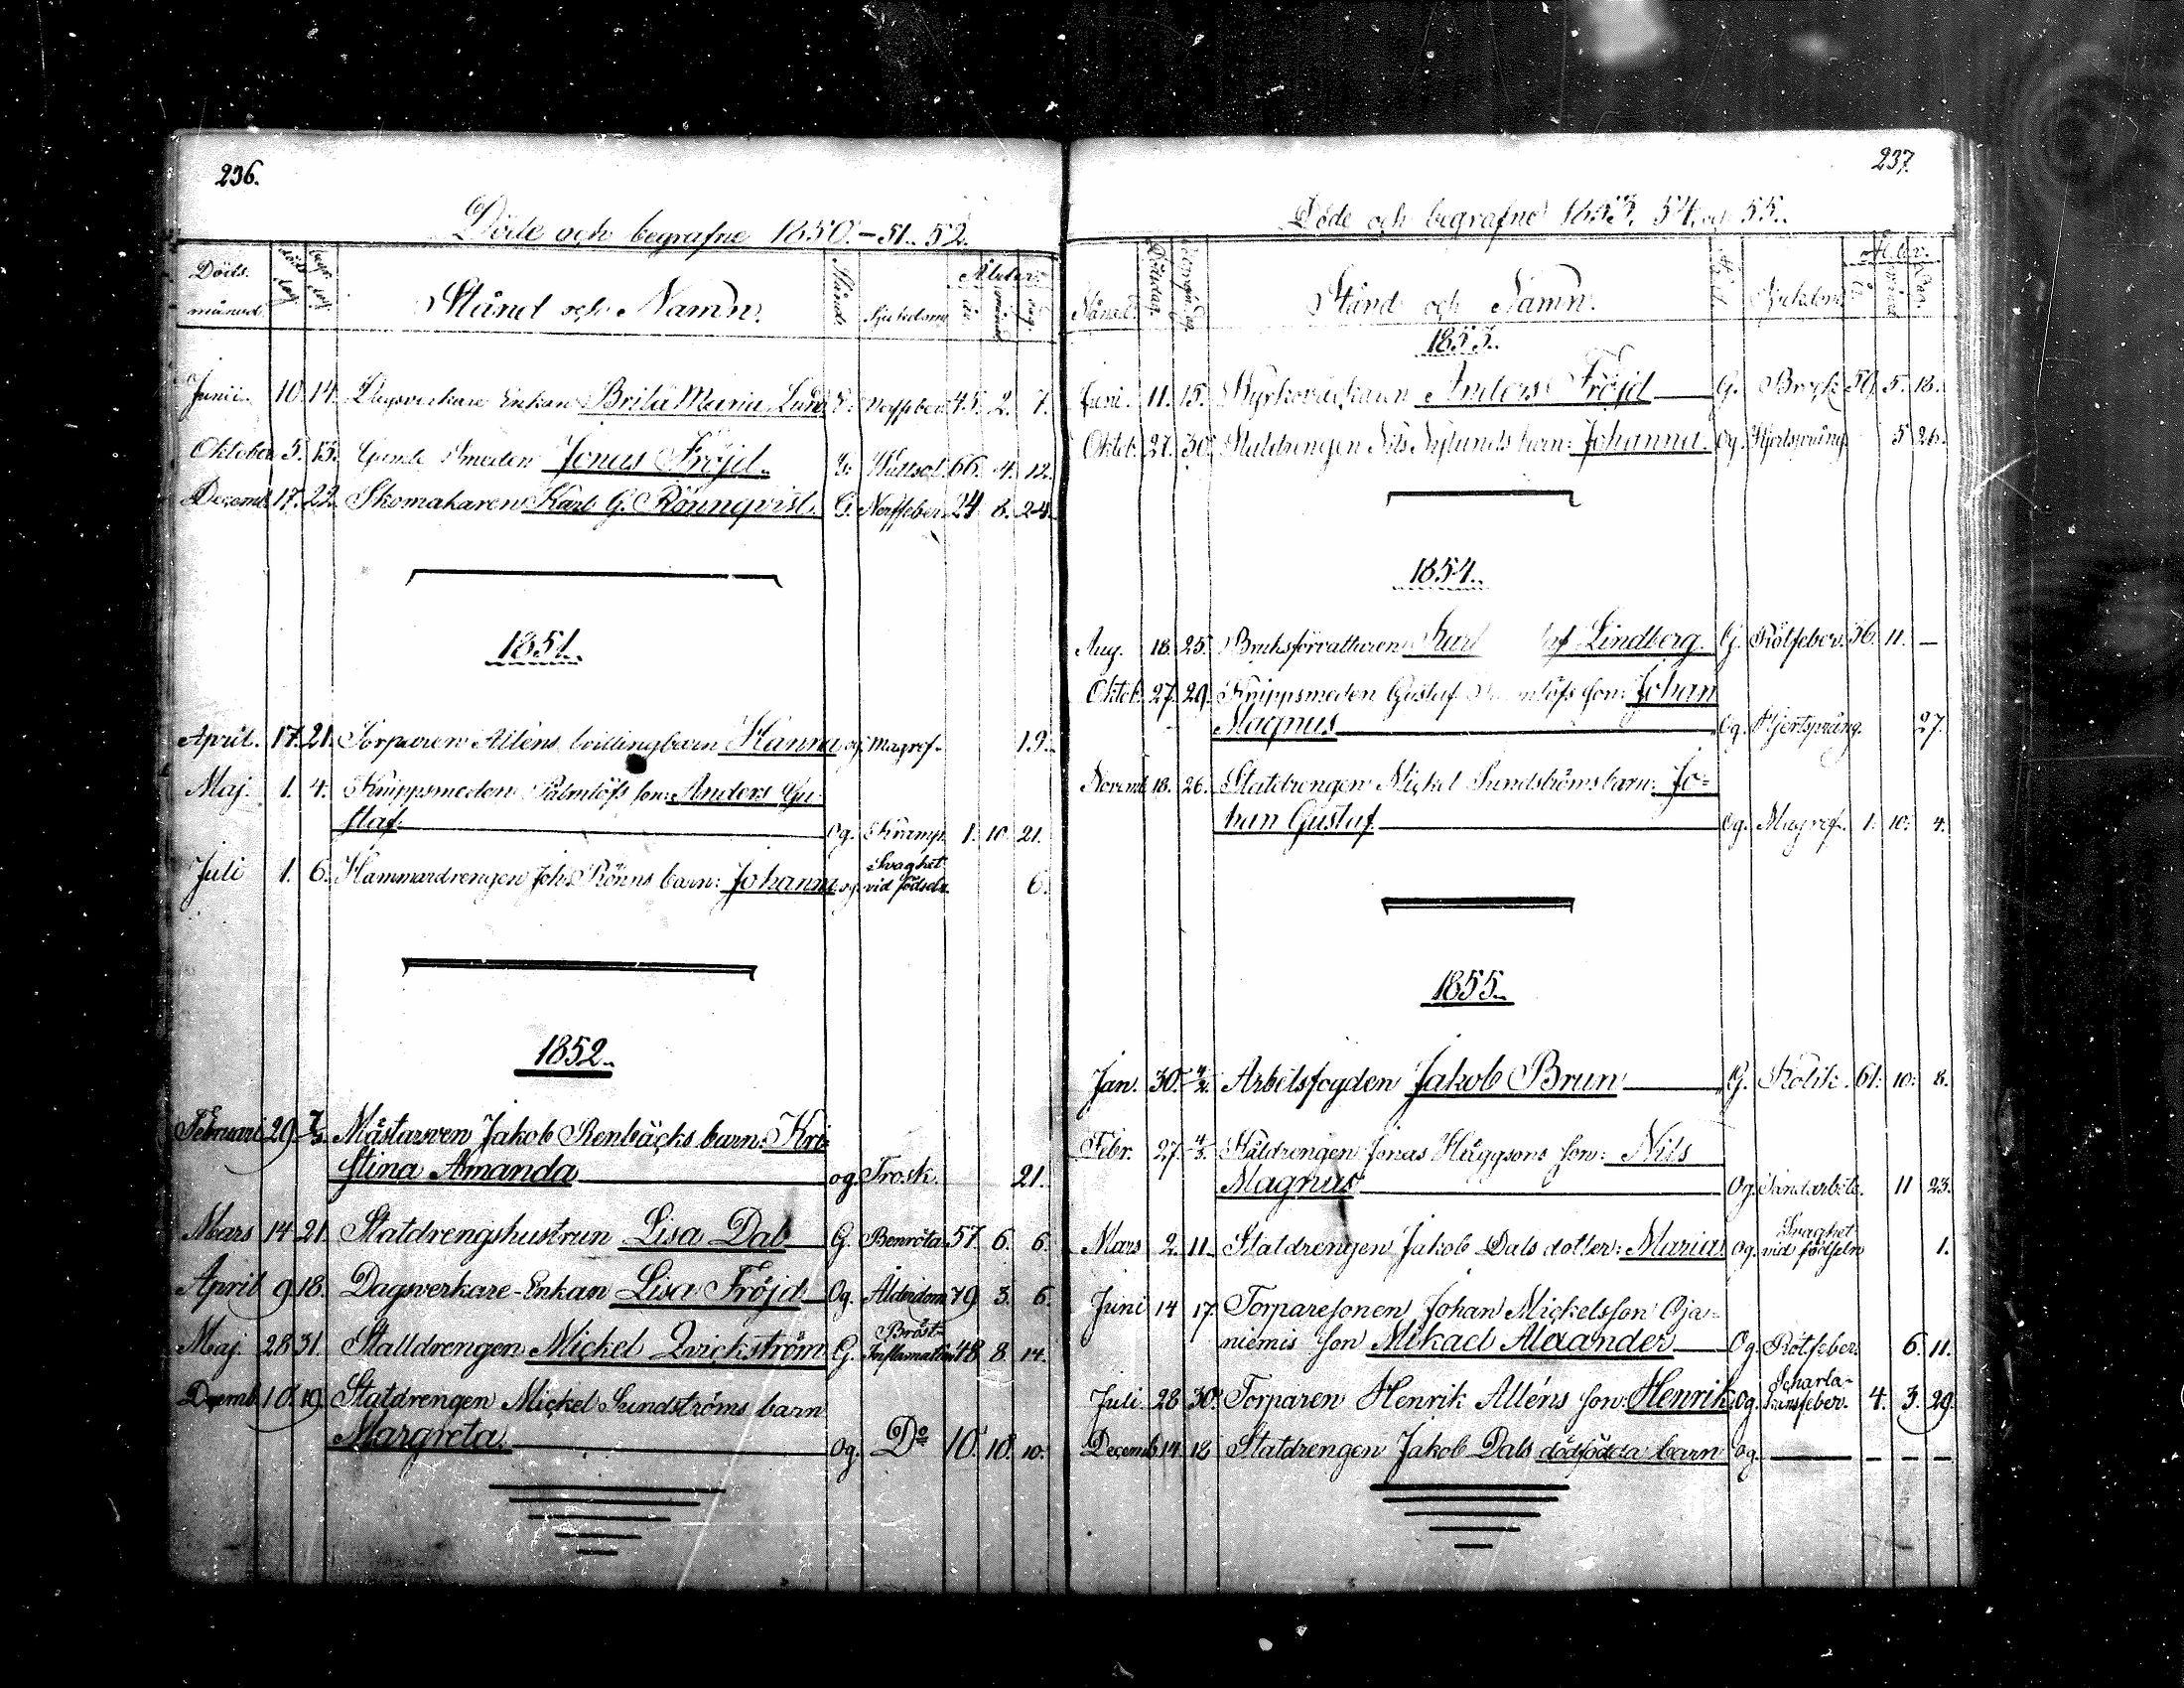 236.
Döde och begrafne 1850.-51..52.
Döds månad. döds dag begr. dag Stånd och Namn. Stånd. Sjukdom Ålder: år månad dag
Junii. 10. 14. Dagsverkare Enkan Brita Maria Lund E. Nerffeber 45. 2. 7.
Oktober 5. 13. Gamle Smeden Jonas Fröjd. G. Wattsot 66. 4. 12.
Decemb. 17. 22. Skomakaren Karl G. Rönnqvist. G. Nerffeber 24 8. 24.
1851.
April. 17. 21. Torparen Alléns tvillingbarn Hanna og. Magref. 19.
Maj. 1. 4. Knippsmeden Palmlöfs son: Anders Gu-
staf. og. Kramp. 1. 10. 21.
Juli 1. 6. Hammardrengen Joh. Rönns barn: Johanna og. Svaghet vid födseln 6.
1852.
Februari 29 7/3. Mästarsven Jakob Renbäcks barn: Kri-
stina Amanda og. Trosk. 21.
Mars 14 21. Statdrengshustrun Lisa Dal G. Benröta 57. 6. 6.
April 9 18. Dagsverkare-Enkan Lisa Fröjd Og. Ålderdom 79 3. 6.
Maj. 28 31. Stalldrengen Mickel Qvickström G. Bröst-Inflamation 48 8. 14.
Decemb. 10. 19. Statdrengen Mickel Sundströms barn
Margreta. Og. Do 10. 10. 10.
237.
Döde och begrafne 1853, 54. och 55..
Månad. Dödsdag Stånd och Namn. Sjukdom Ålder. år månad dag.
1853.
Juni. 11. 15. Kyrkoväktaren Anders Fröjd G. Bråck 59. 5. 18.
Oktob. 27. 30. Statdrengen Nils Nylunds barn: Johanna. Og. Hjertsprång 5 26.
1854.
Aug. 18. 25. Bruksförvaltaren Karl Lindberg. G. Rötfeber. 56. 11. —
Oktob. 27. 29. Knippsmeden Gustaf son: Johan
Magnus Og. Hjertsprång. 27.
Novemb. 18. 26. Statdrengen Mickel Sundströms barn: Jo-
han Gustaf. Og. Magref. 1. 10. 4.
1855.
Jan. 30. 4/2. Arbetsfogden Jakob Brun G. Kolik. 61. 10. 8.
Febr. 27. 4/3. Stäldrengen Jonas Häggsons son: Nils
Magnus Og. Tandarbete. 11 23.
Mars 2. 11. Statdrengen Jakob Dals dotter: Maria. Og. Svaghet vid födseln 1.
Juni 14 17. Torparesonen Johan Mickelsson Oja-
niemis son Mikael Alexander Og. Rötfeber. 6. 11.
Juli. 28 30. Torparen Henrik Alléns son: Henrik Og. Scharla-kansfeber. 4. 3. 29.
Decemb. 14 18 Statdrengen Jakob Dals dödfödda barn Og. — — — —